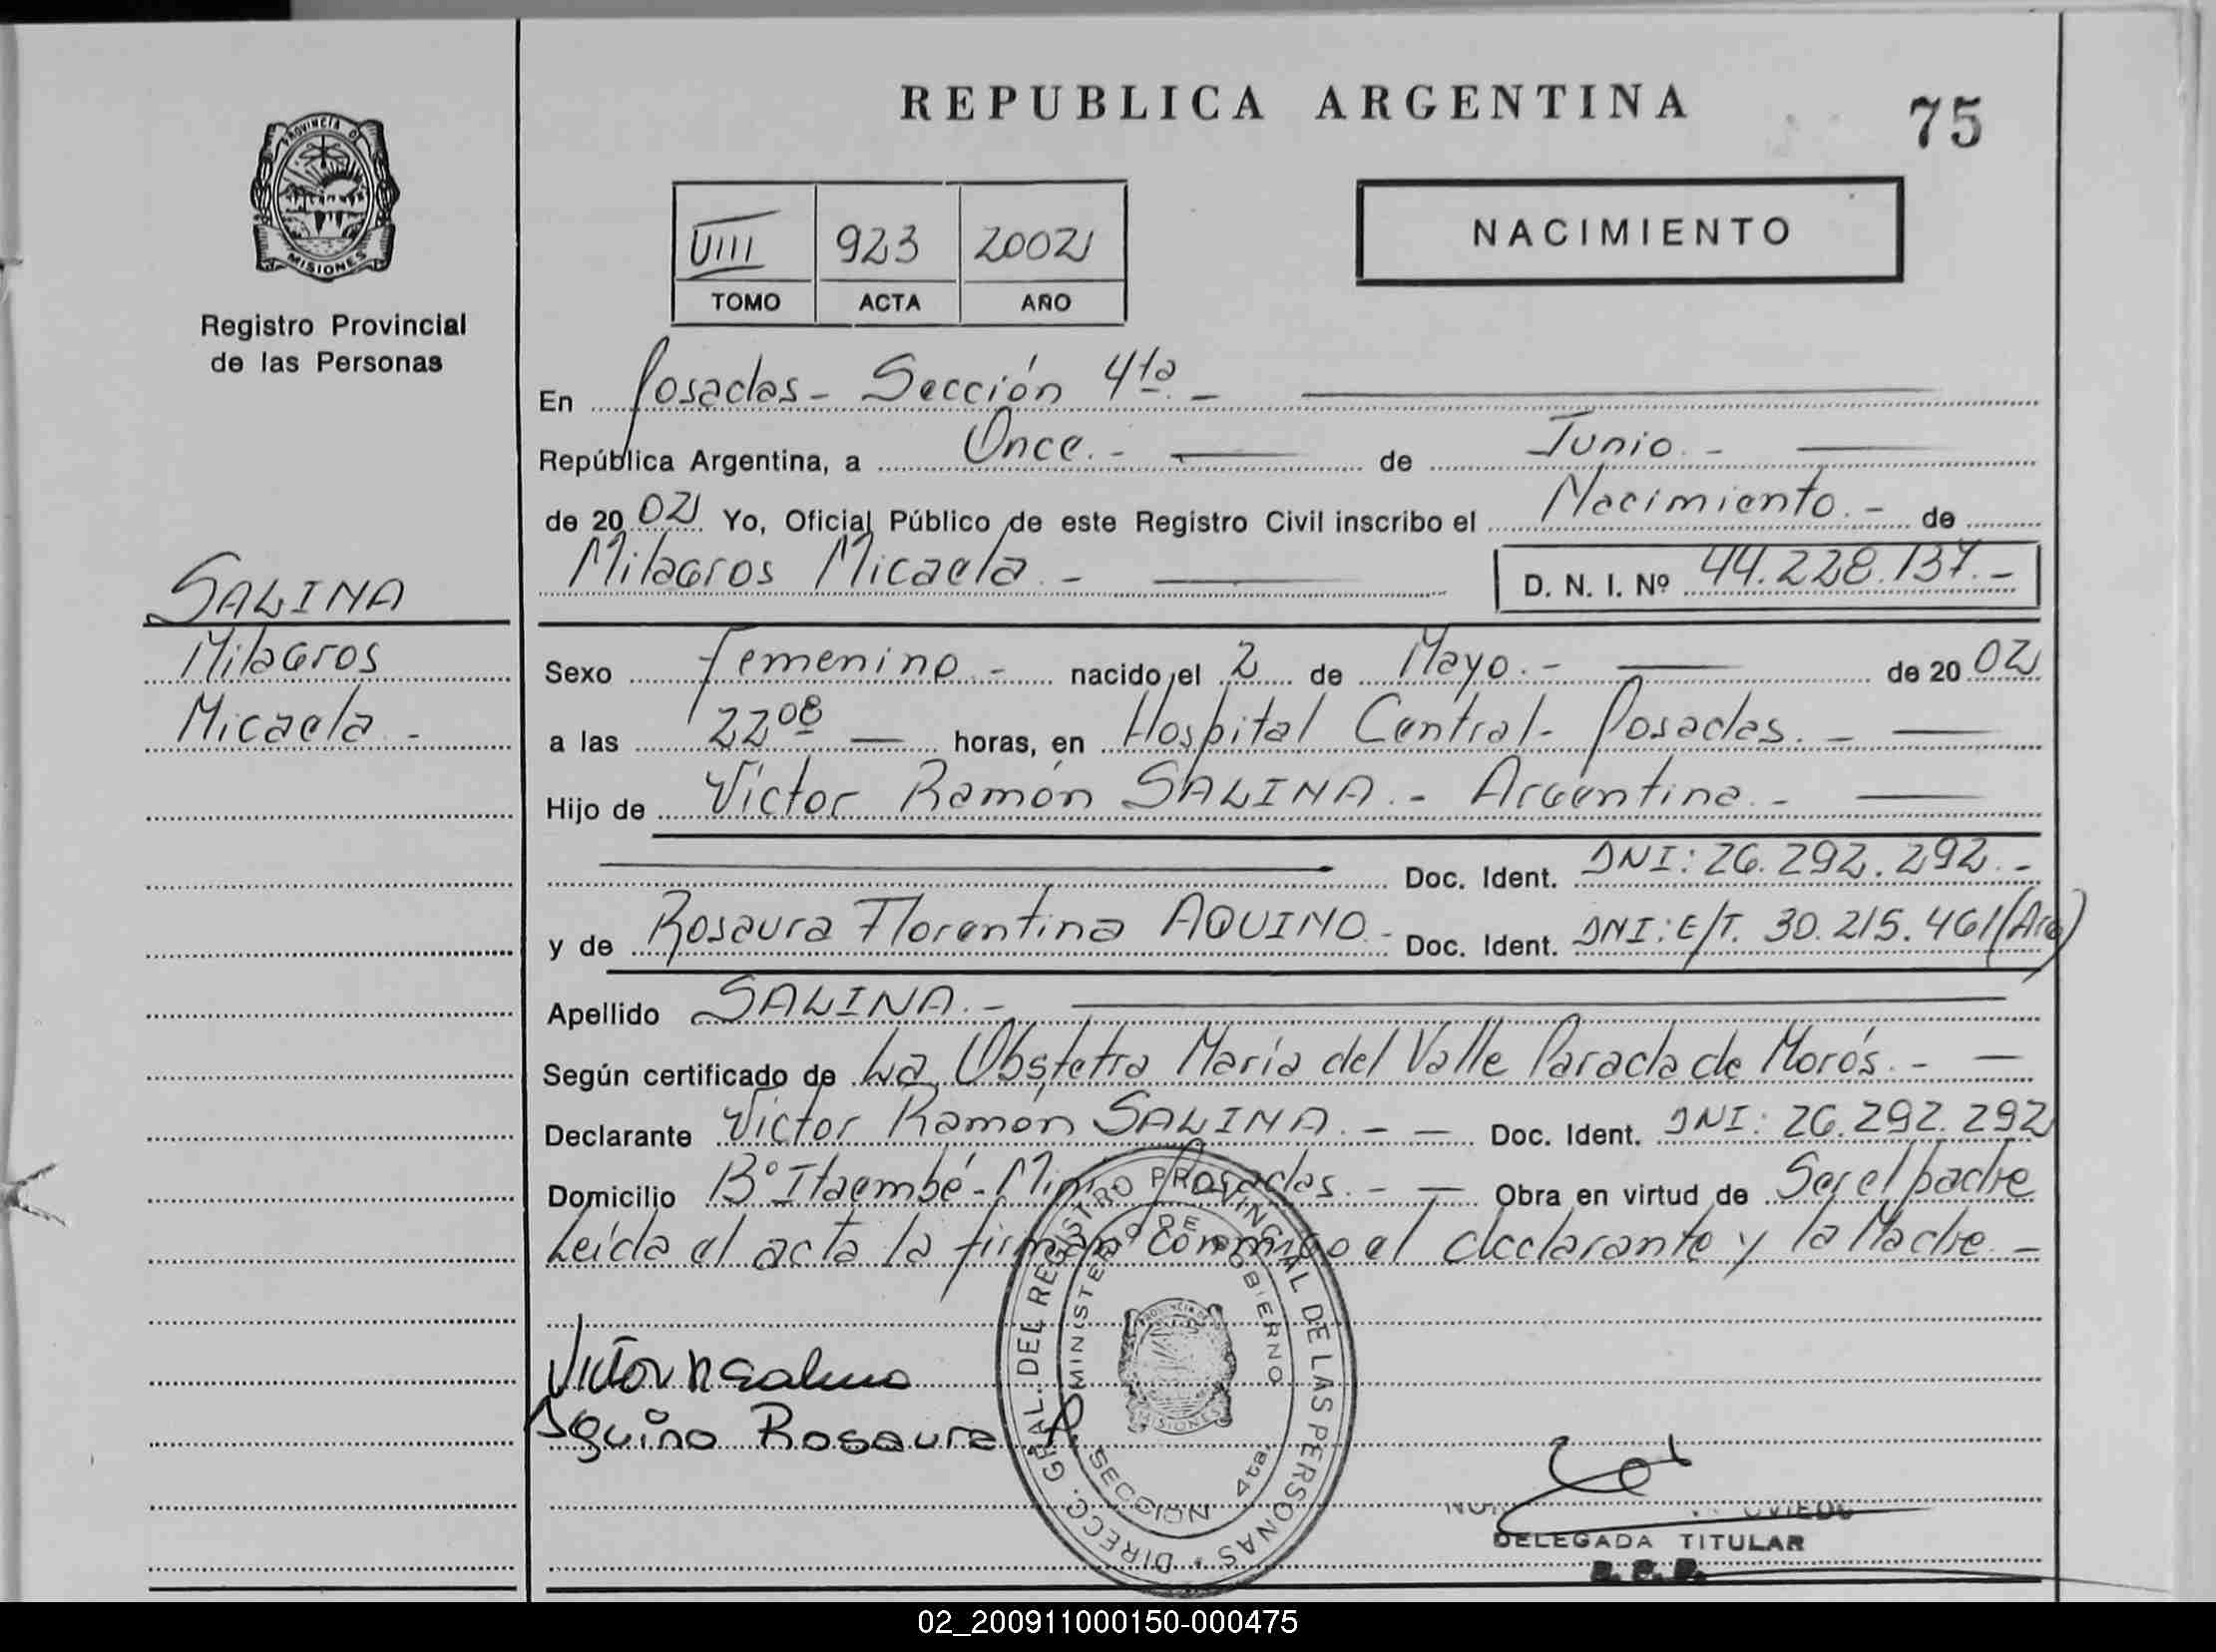 REPUBLICA ARGENTINA
75
PROVINCIA DE
MISIONES
Registro Provincial
de las Personas
VIII 923 2002
TOMO ACTA AÑO
NACIMIENTO
En Posadas - Sección 4ta. -
República Argentina, a Once. - de Junio. -
de 20 02 Yo, Oficial Público de este Registro Civil inscribo el Nacimiento. - de
Milagros Micaela. - D. N. I. Nº 44.228.137. -
SALINA
Milagros
Micaela. -
Sexo Femenino. - nacido el 2 de Mayo. - de 20 02
a las 22 08 horas, en Hospital Central - Posadas. -
Hijo de Víctor Ramón SALINA. - Argentina. -
Doc. Ident. DNI: 26.292.292. -
y de Rosaura Florentina AQUINO - Doc. Ident. DNI: E/T. 30.215.461 (Arg)
Apellido SALINA. -
Según certificado de La Obstetra María del Valle Parada de Morós. -
Declarante Víctor Ramón SALINA. - Doc. Ident. DNI: 26.292.292
Domicilio Bº Itaembé - Miní Posadas. - Obra en virtud de Ser el padre
Leída el acta la firman conmigo el declarante y la Madre. -
Victor R Salina
Aquino Rosaura F.
DIRECC. GRAL. DEL REGISTRO PROVINCIAL DE LAS PERSONAS
MINISTERIO DE GOBIERNO
SECCION 4ta.
OVIEDO
DELEGADA TITULAR
02_200911000150-000475